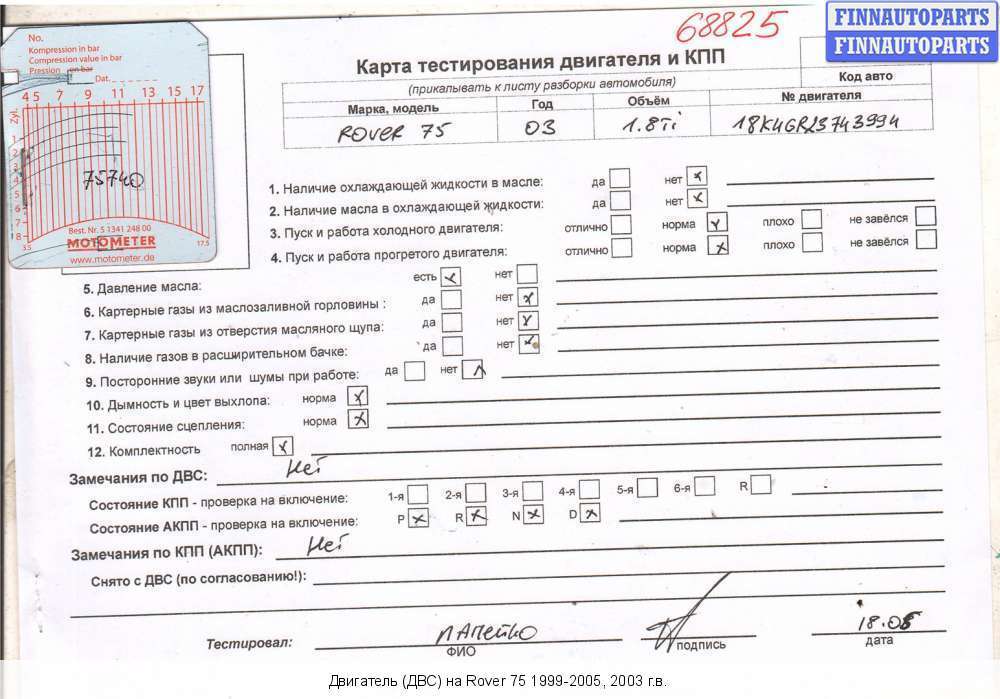 68825
FINNAUTOPARTS
FINNAUTOPARTS
No.
Kompression in bar
Compression value in bar
Pression en bar
Dat.
4 5 7 9 11 13 15 17
Zyl.
1
2
3
4
5
6
7
8
75740
3.5 17.5
Best. Nr. 5 1341 248 00
MOTOMETER
www.motometer.de
Карта тестирования двигателя и КПП
(прикалывать к листу разборки автомобиля)
Код авто
Марка, модель Год Объём № двигателя
ROVER 75 03 1.8Ti 18K4GR23743994
1. Наличие охлаждающей жидкости в масле: да нет x
2. Наличие масла в охлаждающей жидкости: да нет x
3. Пуск и работа холодного двигателя: отлично норма x плохо не завёлся
4. Пуск и работа прогретого двигателя: отлично норма x плохо не завёлся
5. Давление масла: есть x нет
6. Картерные газы из маслозаливной горловины : да нет x
7. Картерные газы из отверстия масляного щупа: да нет x
8. Наличие газов в расширительном бачке: да нет x
9. Посторонние звуки или шумы при работе: да нет x
10. Дымность и цвет выхлопа: норма x
11. Состояние сцепления: норма x
12. Комплектность полная x
Замечания по ДВС: Нет
Состояние КПП - проверка на включение: 1-я 2-я 3-я 4-я 5-я 6-я R
Состояние АКПП - проверка на включение: P x R x N x D x
Замечания по КПП (АКПП): Нет
Снято с ДВС (по согласованию!):
Тестировал: 18.05
ФИО подпись дата
Двигатель (ДВС) на Rover 75 1999-2005, 2003 г.в.